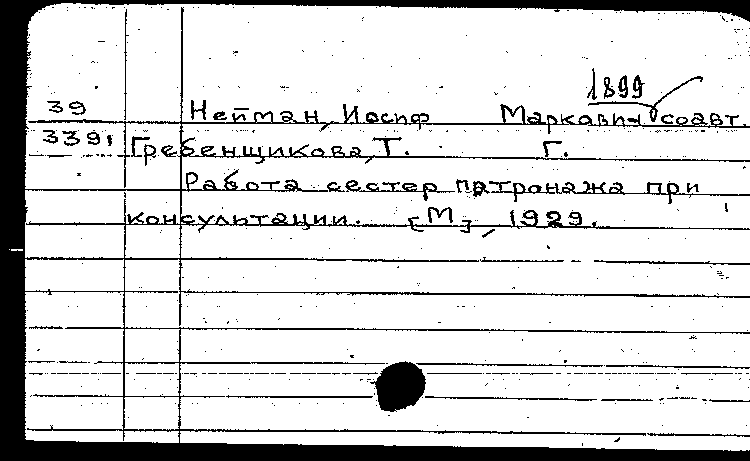 1899
39 Нейман, Иосиф Маркович соавт.
3391 Гребенщикова, Т. Г.
Работа сестер патронажа при
консультации. [М], 1929.